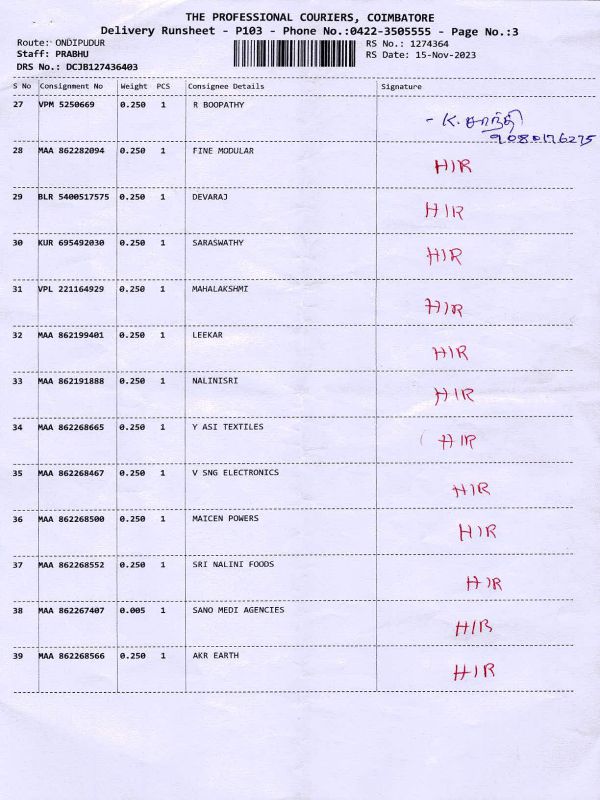 THE PROFESSIONAL COURIERS, COIMBATORE
Delivery Runsheet - P103 - Phone No.:0422-3505555 - Page No.:3
Route: ONDIPUDUR RS No.: 1274364
Staff: PRABHU RS Date: 15-Nov-2023
DRS No.: DCJB127436403
S No Consignment No Weight PCS Consignee Details Signature
27 VPM 5250669 0.250 1 R BOOPATHY
- K. சாந்தி
9080176275
28 MAA 862282094 0.250 1 FINE MODULAR HIR
29 BLR 5400517575 0.250 1 DEVARAJ HIR
30 KUR 695492030 0.250 1 SARASWATHY HIR
31 VPL 221164929 0.250 1 MAHALAKSHMI HIR
32 MAA 862199401 0.250 1 LEEKAR HIR
33 MAA 862191888 0.250 1 NALINISRI HIR
34 MAA 862268665 0.250 1 Y ASI TEXTILES HIR
35 MAA 862268467 0.250 1 V SNG ELECTRONICS HIR
36 MAA 862268500 0.250 1 MAICEN POWERS HIR
37 MAA 862268552 0.250 1 SRI NALINI FOODS HIR
38 MAA 862267407 0.005 1 SANO MEDI AGENCIES HIR
39 MAA 862268566 0.250 1 AKR EARTH HIR